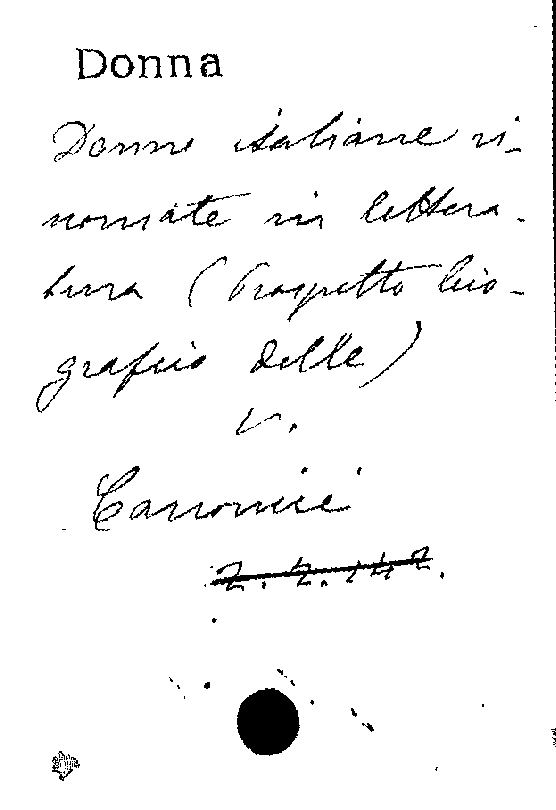 Donna
Donne italiane ri-
nomate in lettera-
tura (Prospetto bio-
grafico delle)
v.
Canonici
2. 2. 142.